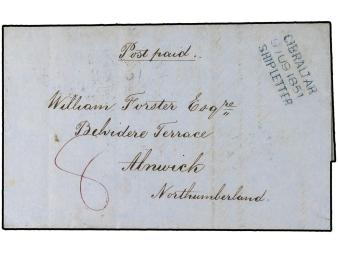 Post paid.
GIBRALTAR
9 AU 1851
SHIPLETTER
William Forster Esqre
Belvidere Terrace
Alnwick
Northumberland.
8